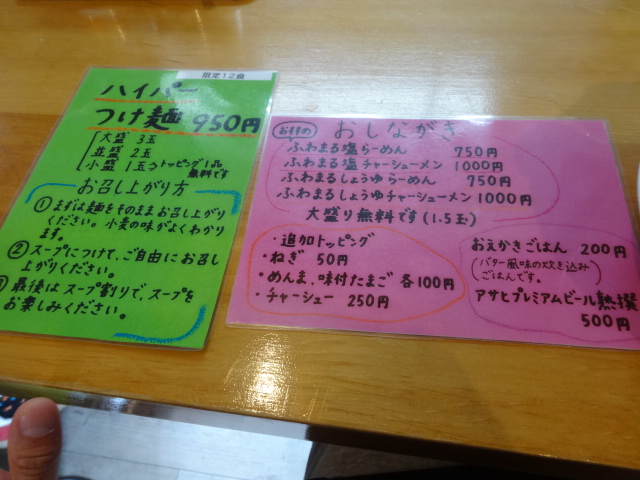 限定12食
ハイパー
つけ麺 950円
大盛 3玉
並盛 2玉
小盛 1玉→トッピング1品
無料です
お召し上がり方
①まずは麺をそのままお召し上がり
ください。小麦の味がよくわかり
ます。
②スープにつけて、ご自由にお召し
上がりください。
最後はスープ割りで、スープを
お楽しみください。
おすすめ おしながき
ふわまる塩らーめん 750円
ふわまる塩チャーシューメン 1000円
ふわまるしょうゆらーめん 750円
ふわまるしょうゆチャーシューメン 1000円
大盛り無料です(1.5玉)
・追加トッピング
・ねぎ 50円
・めんま、味付たまご 各100円
・チャーシュー 250円
おえかきごはん 200円
(バター風味の炊き込み
ごはんです。)
アサヒプレミアムビール熟撰
500円